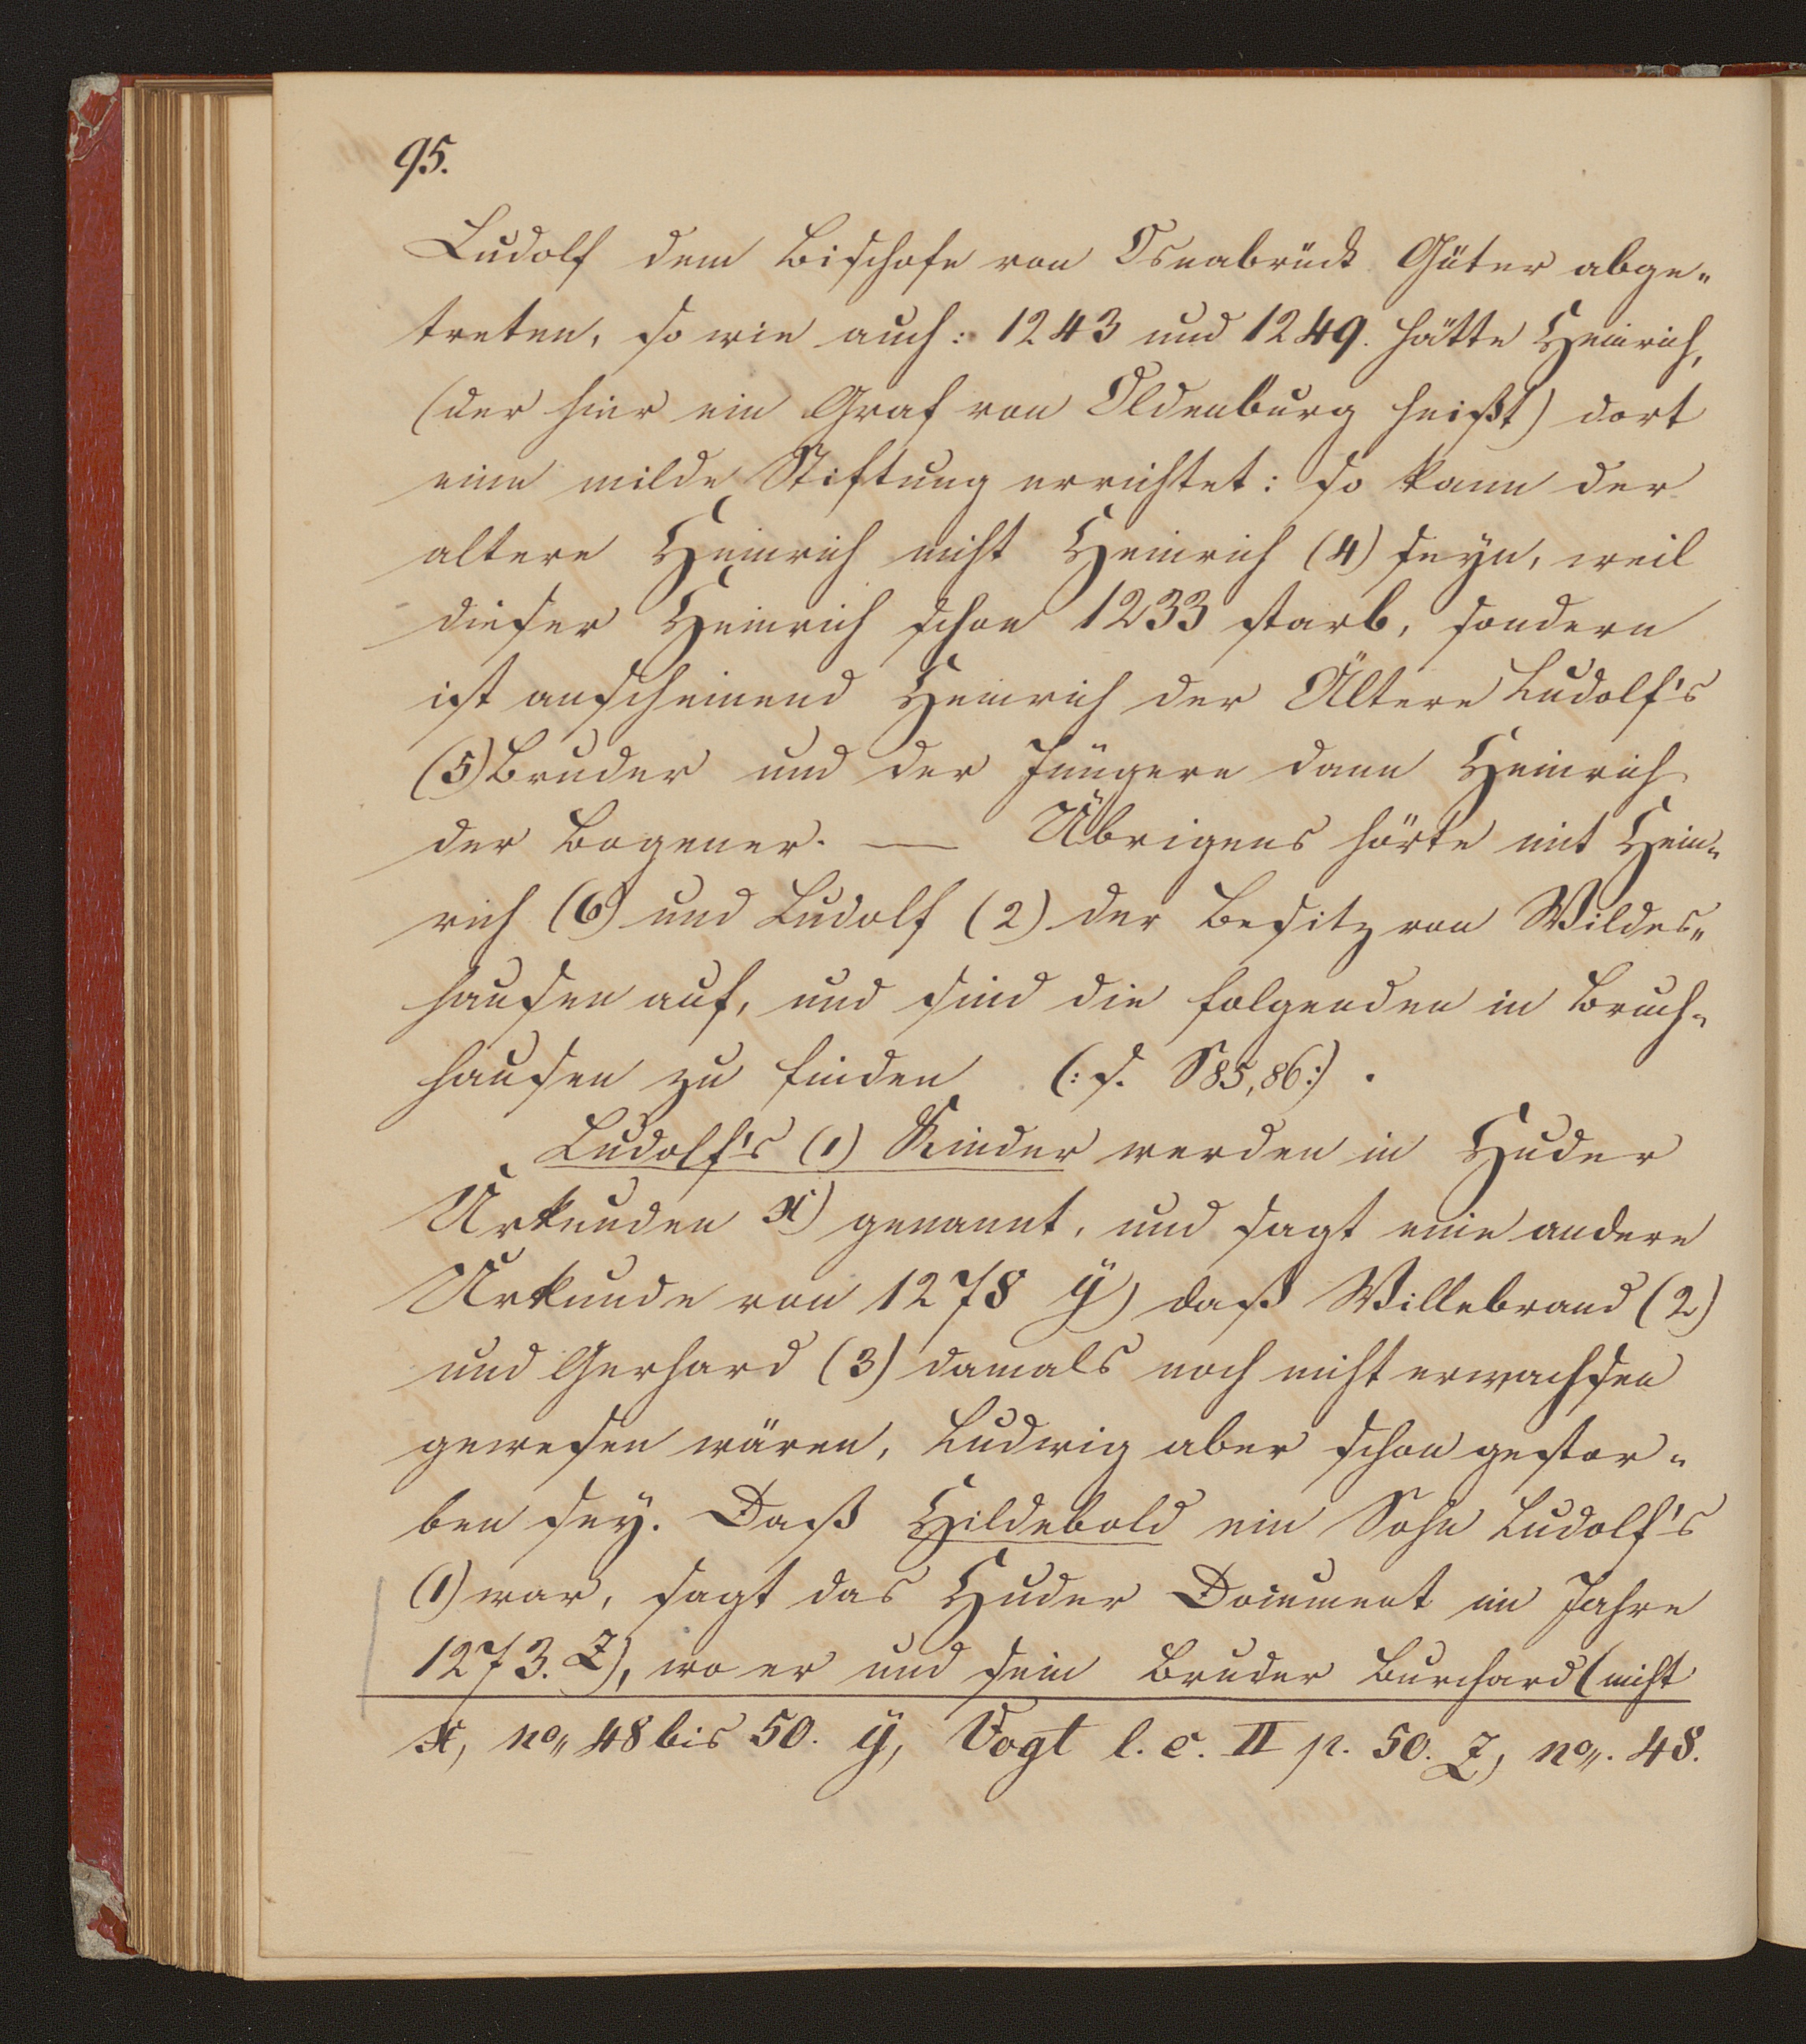 95.
Ludolf dem Bischofe von Osnabrück Güter abge„
treten, so wie auch: 1243 und 1249. hätte Heinrich,
(der hier ein Graf von Oldenburg heißt) dort
eine milde Stiftung errichtet: so kann der
altere Heinrich nicht Heinrich (4) seyn, weil
dieser Heinrich schon 1233 starb, sondern
ist anscheinend Heinrich der Ältere Ludolf's
(5) Bruder und der Jüngere dann Heinrich
der Bogener. — Übrigens hörte mit Hein„
rich (6) und Ludolf (2) der Besitz von Wildes„
hausen auf, und sind die folgenden in Bruch„
hausen zu finden (: s. S 85, 86:) .
Ludolf's (1) Kinder werden in Huder
Urkunden x) genannt, und sagt eine andere
Urkunde von 1278 ÿ) daß Willebrand (2)
und Gerhard (3) damals noch nicht erwachsen
gewesen wären, Ludwig aber schon gestor„
ben sey. Daß Hildebold ein Sohn Ludolf's
(1) war, sagt das Huder Document im Jahre
1273. Z), wo er und sein Bruder Burchard (nicht
x, no„ 48 bis 50. ÿ, Vogt l. c. II p. 50. Z, no„. 48.